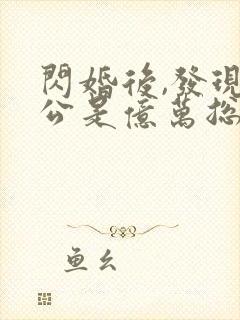 閃婚後,發現
公是億萬捴
鱼幺